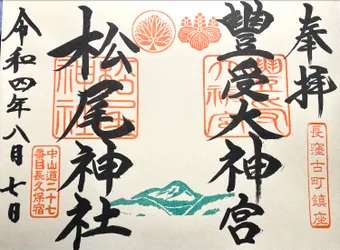 奉拝
長窪古町鎮座
豐受大神宮
松尾神社
中山道二十七
番目長久保宿
令和四年八月七日